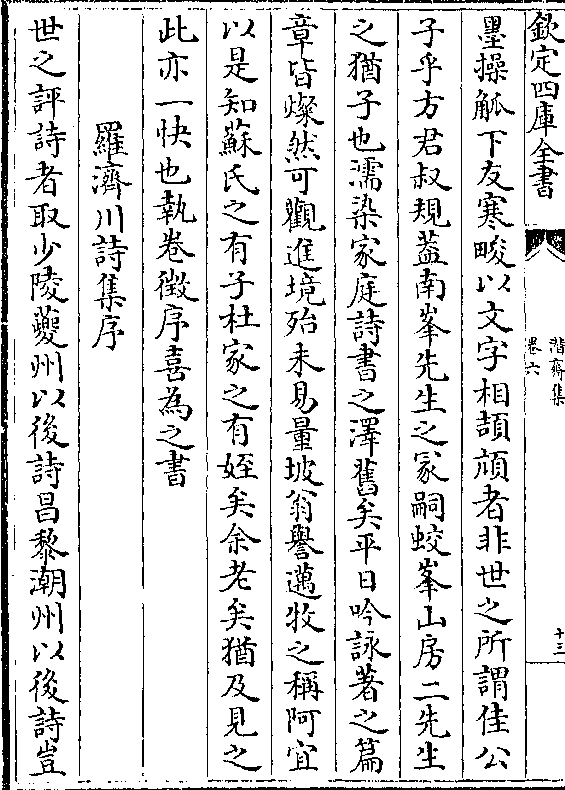 欽定四庫全書
潛齋集
卷六
十三
墨操觚下友寒畯以文字相頡頏者非世之所謂佳公
子乎方君叔規蓋南峯先生之冡嗣蛟峯山房二先生
之猶子也濡染家庭詩書之澤舊矣平日吟詠著之篇
章皆燦然可觀進境殆未易量坡翁譽邁牧之稱阿宜
以是知蘇氏之有子杜家之有姪矣余老矣猶及見之
此亦一快也執卷徵序喜為之書
羅濟川詩集序
世之評詩者取少陵夔州以後詩昌黎潮州以後詩豈